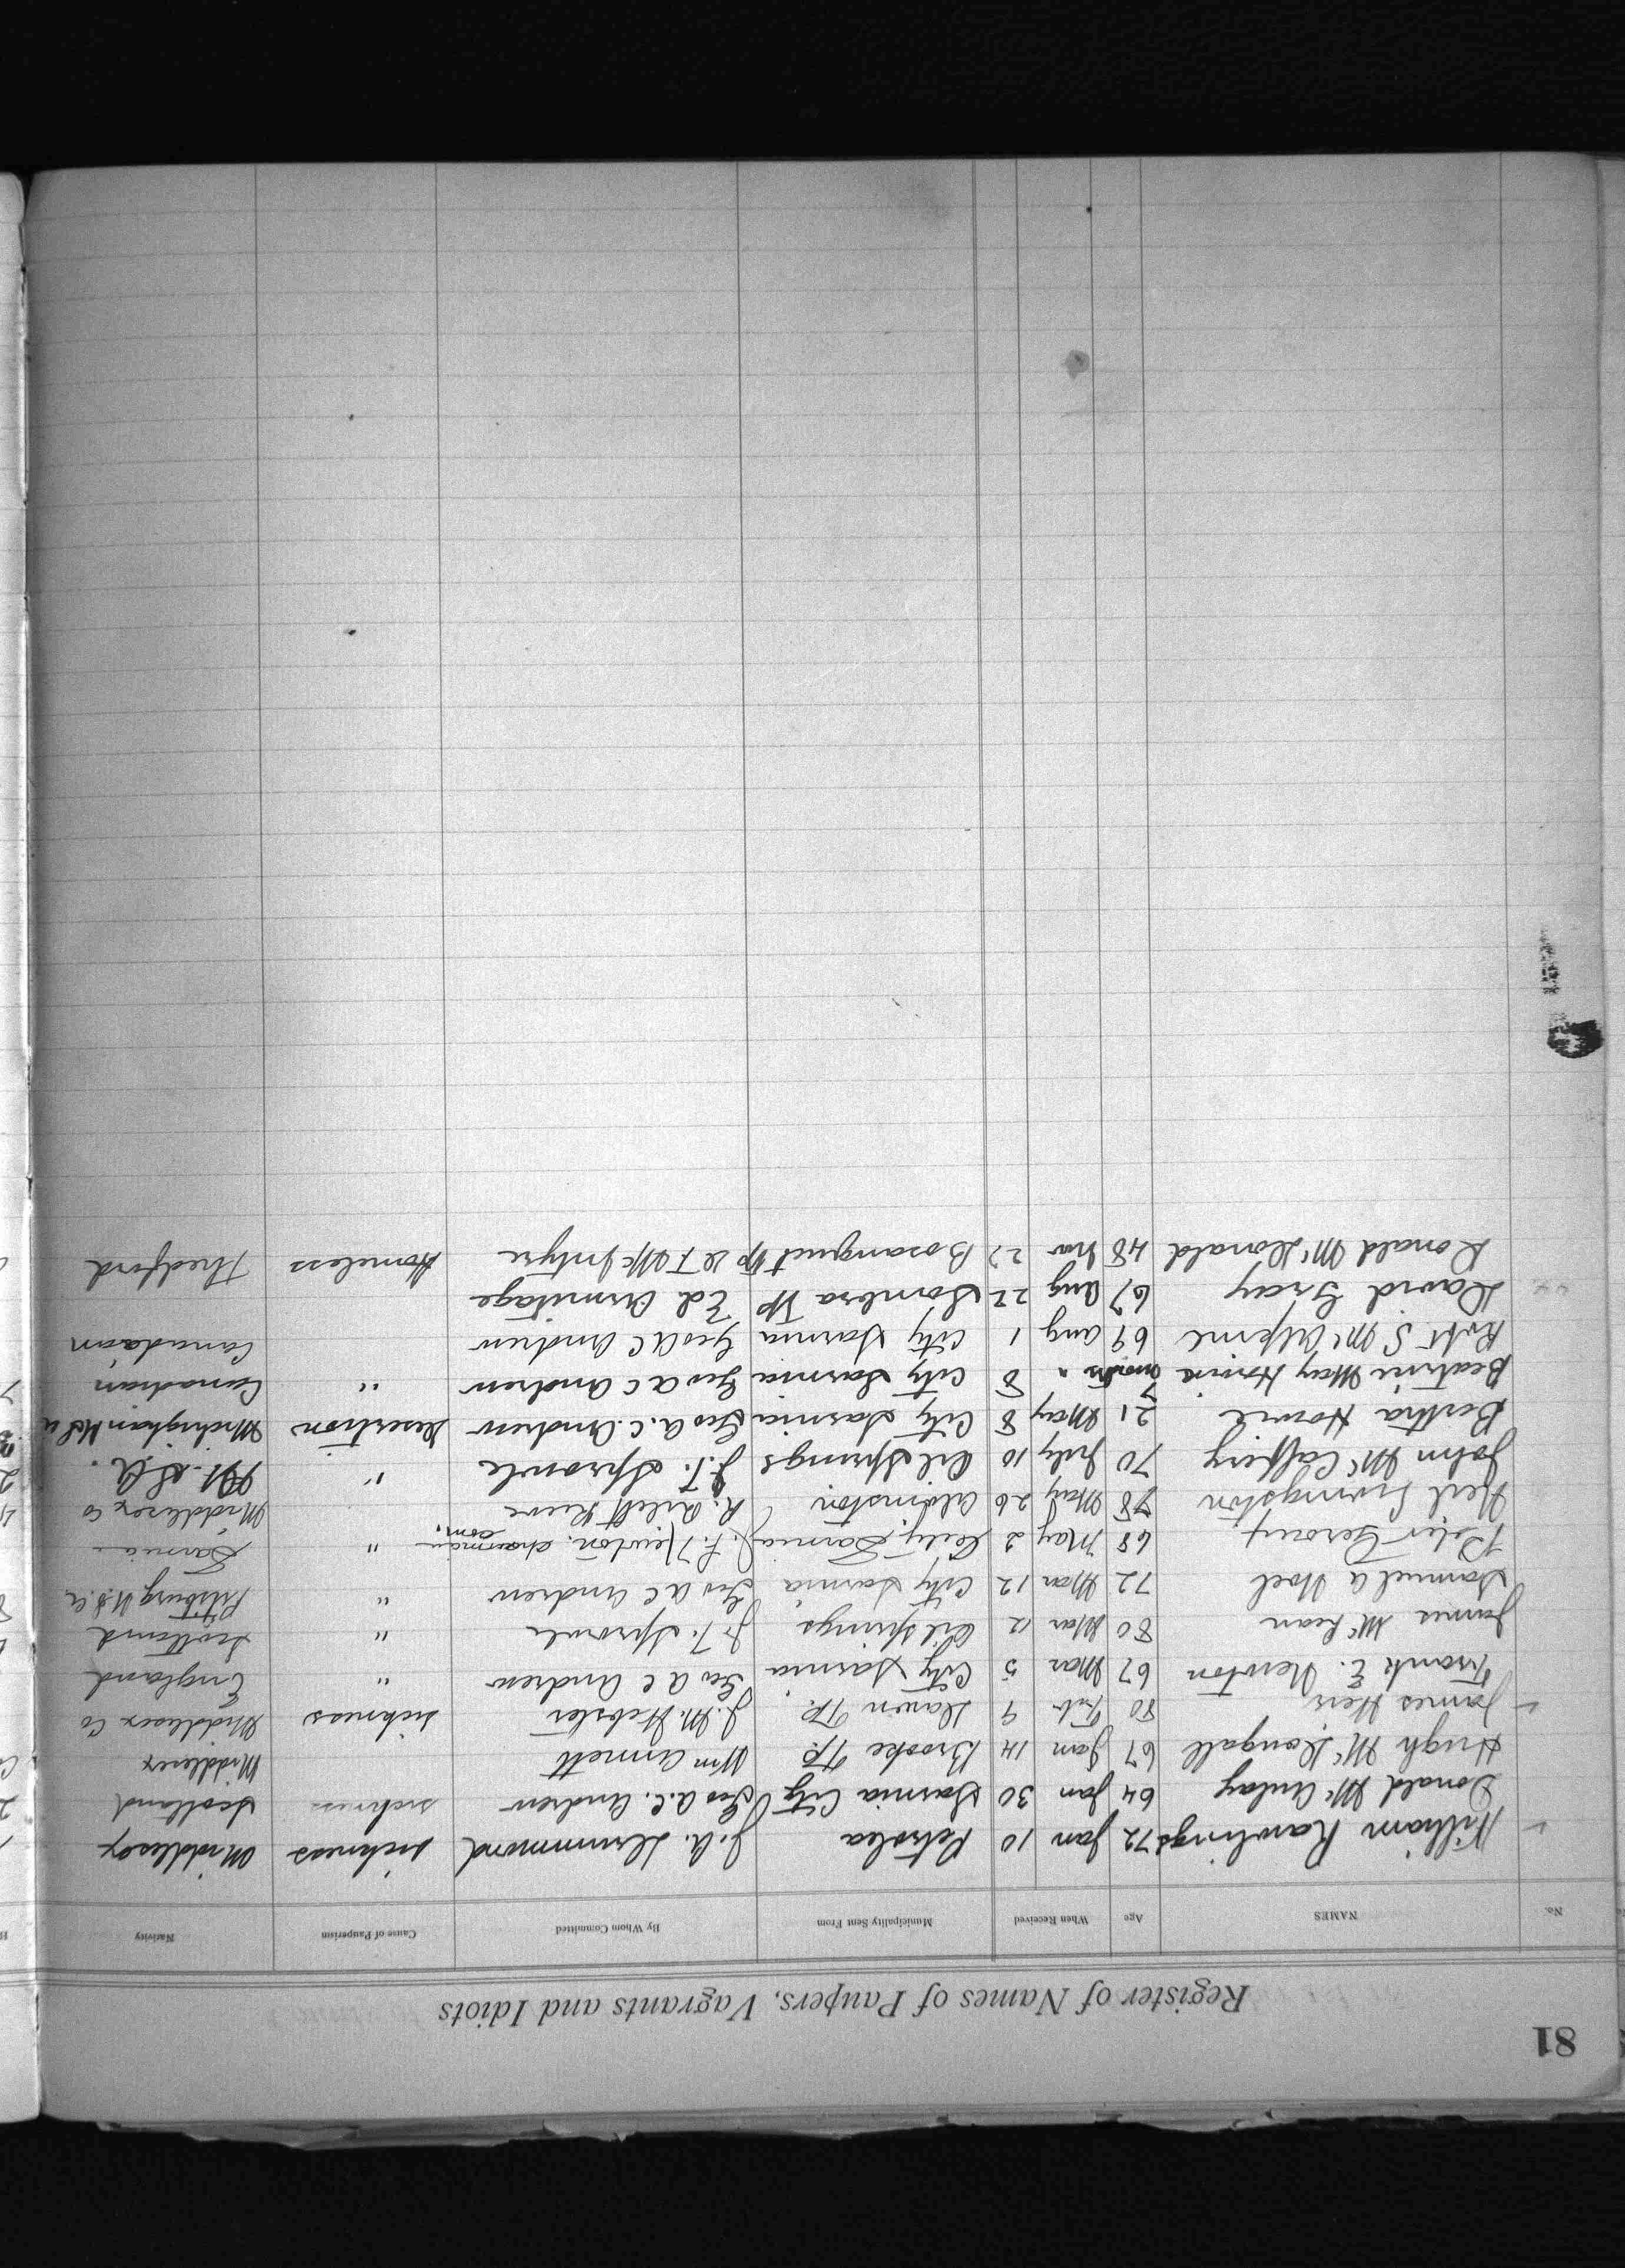 81
Register of Names of Paupers, Vagrants and Idiots
No. NAMES Age When Received Municipality Sent From By Whom Committed Cause of Pauperism Nativity
William Rawlings 72 Jan 10 Petrolea J. A. Drummond sickness Middlesex
Donald McAulay 64 Jan 30 Sarnia City Geo A. C. Andrew sickness Scotland
Hugh McDougall 67 Jan 14 Brooke Tp. Wm Annett Middlesex
James Keir 80 Feb 9 Dawn Tp. J. M. Webster sickness Middlesex Co
Frank E. Newton 67 Mar 5 City Sarnia Geo A C Andrew " England
James McLean 80 Mar 12 Oil Springs J. T. Sproule " Scotland
Samuel A Noel 72 Mar 12 City Sarnia Geo A C Andrew " Pittsburg U.S.A
Peter 68 May 2 City Sarnia J. F. Newton. chairman com. " Sarnia
Neil Livingston 78 May 26 Alvinston R. Reeve Middlesex Co
John McCaffery 70 July 10 Oil Springs J. T. Sproule " U.S.A.
Bertha Howie 21 May 8 City Sarnia Geo A. C. Andrew Desertion Michighain U S A
Beatrice May Howie 7 months " 8 City Sarnia Geo A C Andrew " Canadian
Robt S. McAlpine 69 Aug 1 City Sarnia Geo A C Andrew Canadian
David Gray 67 Aug 22 Sombra Tp Ed. Armitage
Ronald McDonald 48 Nov 27 Bosanquet Tp McIntyre Homeless Thedford